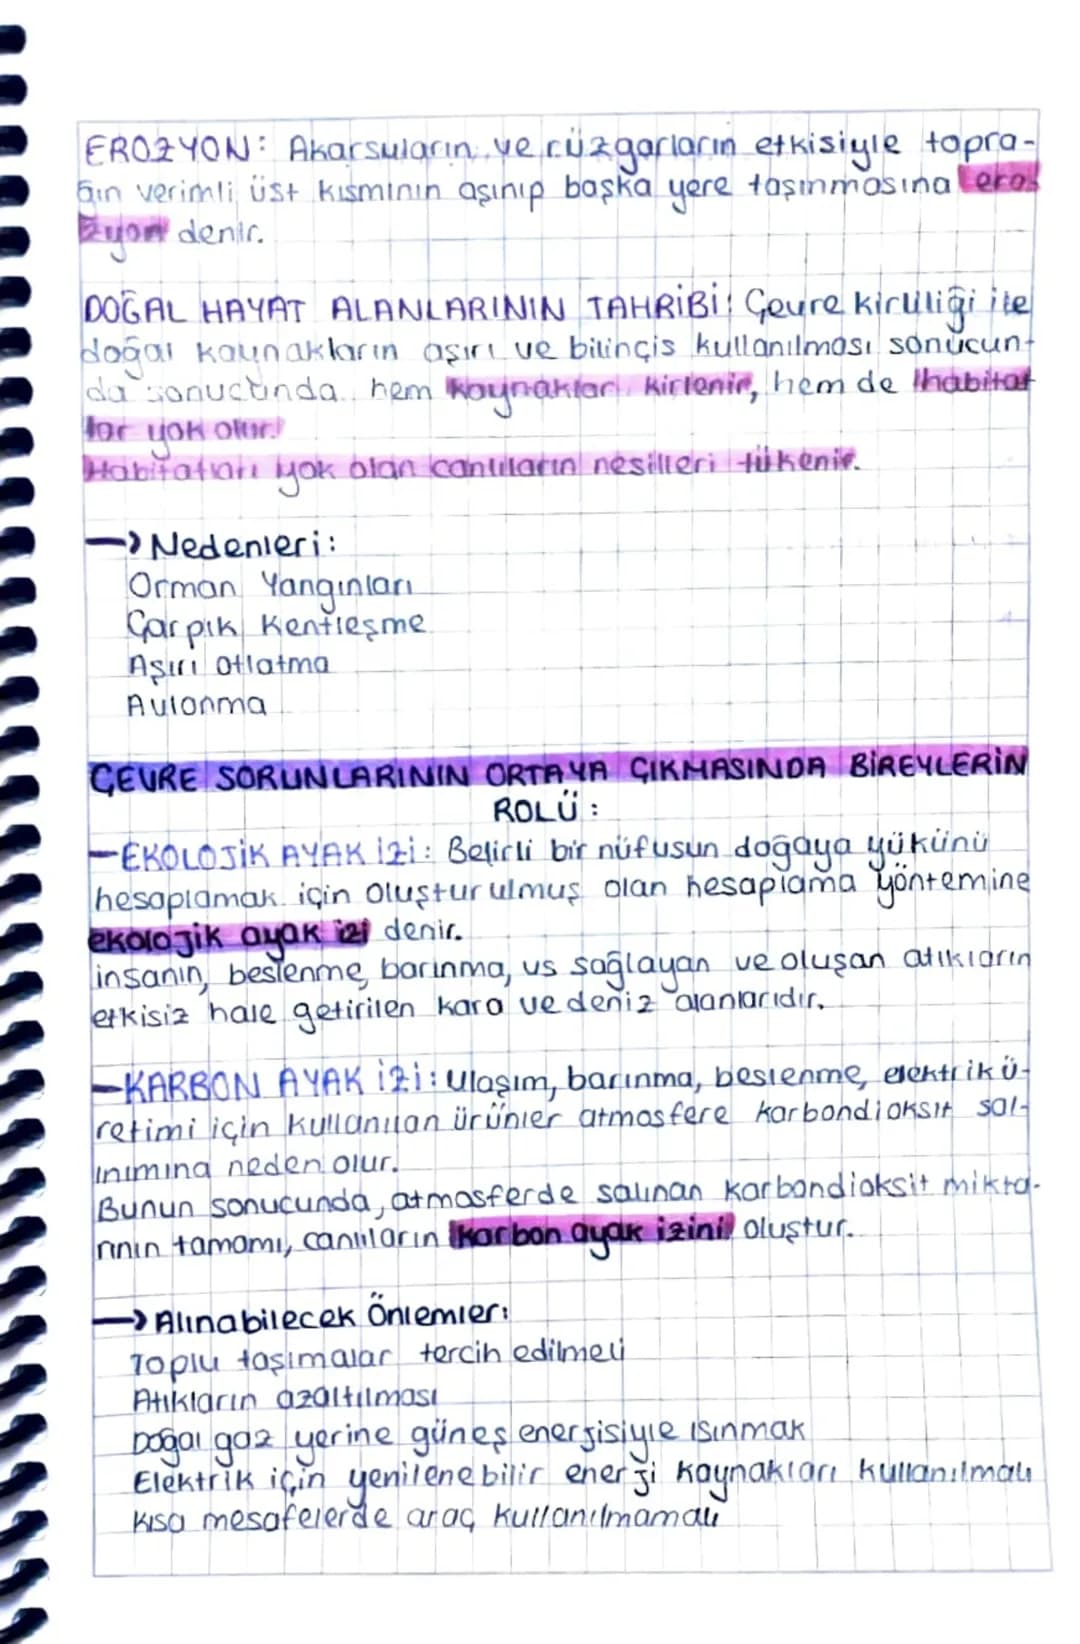 EROZYON: Akarsuların ve rüzgarların etkisiyle topra-
ğın verimli üst kısmının aşınıp başka yere taşınmasına ero-
zyon denir.
DOĞAL HAYAT ALANLARININ TAHRİBİ: Çevre kirliliği ile
doğal kaynakların aşırı ve bilinçis kullanılması sonucun-
da sonuctunda hem kaynaklar kirlenir, hem de habitat
lar yok olur.
Habitatları yok olan canlıların nesilleri tükenir.
→ Nedenleri:
Orman Yangınları
Çarpık Kentleşme
Aşırı otlatma
Avlanma
ÇEVRE SORUNLARININ ORTAYA ÇIKMASINDA BİREYLERİN
ROLÜ:
-EKOLOJİK AYAK İZİ: Belirli bir nüfusun doğaya yükünü
hesaplamak için oluşturulmuş olan hesaplama yöntemine
ekolojik ayak izi denir.
insanın, beslenme, barınma, vs sağlayan ve oluşan atıkların
etkisiz hale getirilen kara ve deniz alanlarıdır.
-KARBON AYAK İZİ: Ulaşım, barınma, beslenme, elektrik ü-
retimi için kullanılan ürünler atmosfere karbondioksit sal-
ınımına neden olur.
Bunun sonucunda, atmosferde salınan karbondioksit mikta-
rının tamamı, canlıların karbon ayak izini oluştur.
→ Alınabilecek Önlemler:
Toplu taşımalar tercih edilmeli
Atıkların azaltılması
Doğal gaz yerine güneş enerjisiyle ısınmak
Elektrik için yenilenebilir enerji kaynakları kullanılmalı
Kısa mesafelerde araç kullanılmamalı